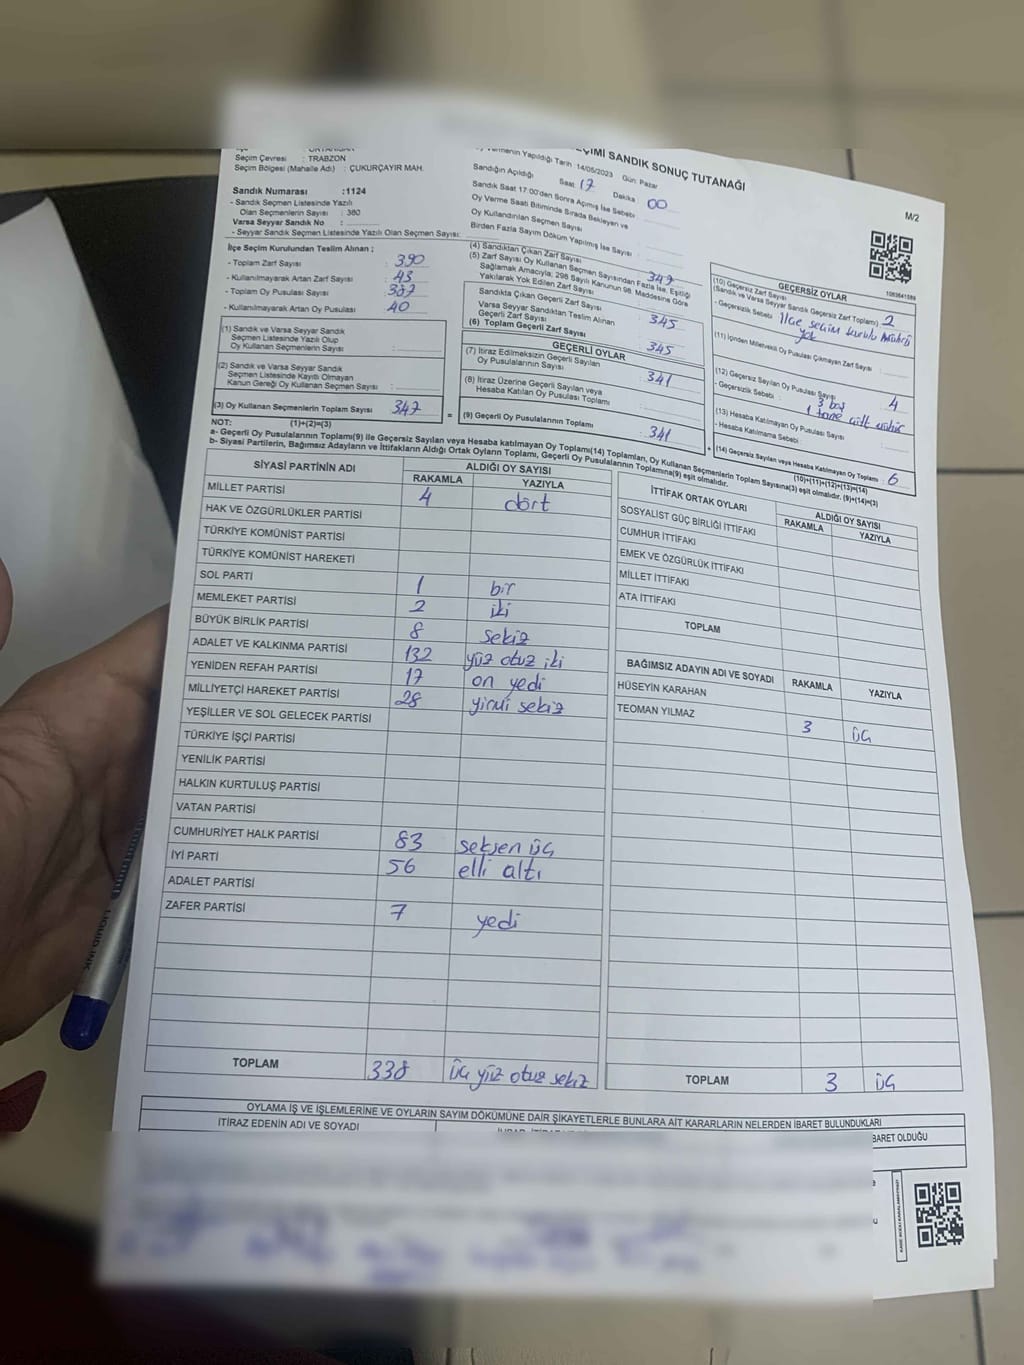 ÇİMİ SANDIK SONUÇ TUTANAĞI
M/2
Seçim Çevresi : TRABZON
Seçim Bölgesi (Mahalle Adı) : ÇUKURÇAYIR MAH.
Sandık Numarası :1124
- Sandık Seçmen Listesinde Yazılı
Olan Seçmenlerin Sayısı : 380
Varsa Seyyar Sandık No :
- Seyyar Seçmen Listesinde Yazılı Olan Seçmen Sayısı:
Vermenin Yapıldığı Tarih 14/05/2023 Gün: Pazar
Sandığın Açıldığı Saat 17 Dakika 00
Sandık Saat 17:00'den Sonra Açımış İse Sebebi
Oy Verme Saati Bitiminde Sırada Bekleyen ve
Oy Kullandırılan Seçmen Sayısı
Birden Fazla Sayım Döküm Yapılmış İse Sayısı :
İlçe Seçim Kurulundan Teslim Alınan ;
- Toplam Zarf Sayısı : 390
- Kullanılmayarak Artan Zarf Sayısı : 43
- Toplam Oy Pusulası Sayısı : 387
- Kullanılmayarak Artan Oy Pusulası : 40
(1) Sandık ve Varsa Seyyar Sandık
Seçmen Listesinde Yazılı Olup
Oy Kullanan Seçmenlerin Sayısı :
(2) Sandık ve Varsa Seyyar Sandık
Seçmen Listesinde Kayıtlı Olmayan
Kanun Gereği Oy Kullanan Seçmen Sayısı :
(3) Oy Kullanan Seçmenlerin Toplam Sayısı : 347
(1)+(2)=(3)
(4) Sandıktan Çıkan Zarf Sayısı : 347
(5) Zarf Sayısı Oy Kullanan Seçmen Sayısından Fazla İse, Eşitliği
Sağlamak Amacıyla; 298 Sayılı Kanunun 98. Maddesine Göre
Yakılarak Yok Edilen Zarf Sayısı
Sandıkta Çıkan Geçerli Zarf Sayısı : 345
Varsa Seyyar Sandıktan Teslim Alınan
Geçerli Zarf Sayısı
(6) Toplam Geçerli Zarf Sayısı : 345
GEÇERLİ OYLAR
(7) İtiraz Edilmeksizin Geçerli Sayılan
Oy Pusulalarının Sayısı : 341
(8) İtiraz Üzerine Geçerli Sayılan veya
Hesaba Katılan Oy Pusulası Toplamı
= (9) Geçerli Oy Pusulalarının Toplamı : 341
1083641589
GEÇERSİZ OYLAR
(10) Geçersiz Zarf Sayısı
(Sandık ve Varsa Seyyar Sandık Geçersiz Zarf Toplamı) : 2
- Geçersizlik Sebebi : İlçe seçim kurulu mührü
yok
(11) İçinden Milletvekili Oy Pusulası Çıkmayan Zarf Sayısı
(12) Geçersiz Sayılan Oy Pusulası Sayısı : 4
- Geçersizlik Sebebi : 3 boş
1 tane çift mühür
(13) Hesaba Katılmayan Oy Pusulası Sayısı
- Hesaba Katılmama Sebebi :
+ (14) Geçersiz Sayılan veya Hesaba Katılmayan Oy Toplamı : 6
(10)+(11)+(12)+(13)=(14)
NOT:
a- Geçerli Oy Pusulalarının Toplamı(9) ile Geçersiz Sayılan veya Hesaba katılmayan Oy Toplamı(14) Toplamları, Oy Kullanan Seçmenlerin Toplam Sayısına(3) eşit olmalıdır. (9)+(14)=(3)
b- Siyasi Partilerin, Bağımsız Adayların ve İttifakların Aldığı Ortak Oyların Toplamı, Geçerli Oy Pusulalarının Toplamına(9) eşit olmalıdır.
SİYASİ PARTİNİN ADI ALDIĞI OY SAYISI
RAKAMLA YAZIYLA
MİLLET PARTİSİ 4 dört
HAK VE ÖZGÜRLÜKLER PARTİSİ
TÜRKİYE KOMÜNİST PARTİSİ
TÜRKİYE KOMÜNİST HAREKETİ
SOL PARTİ 1 bir
MEMLEKET PARTİSİ 2 iki
BÜYÜK BİRLİK PARTİSİ 8 sekiz
ADALET VE KALKINMA PARTİSİ 132 yüz otuz iki
YENİDEN REFAH PARTİSİ 17 on yedi
MİLLİYETÇİ HAREKET PARTİSİ 28 yirmi sekiz
YEŞİLLER VE SOL GELECEK PARTİSİ
TÜRKİYE İŞÇİ PARTİSİ
YENİLİK PARTİSİ
HALKIN KURTULUŞ PARTİSİ
VATAN PARTİSİ
CUMHURİYET HALK PARTİSİ 83 seksen üç
İYİ PARTİ 56 elli altı
ADALET PARTİSİ
ZAFER PARTİSİ 7 yedi
TOPLAM 338 üç yüz otuz sekiz
İTTİFAK ORTAK OYLARI ALDIĞI OY SAYISI
RAKAMLA YAZIYLA
SOSYALİST GÜÇ BİRLİĞİ İTTİFAKI
CUMHUR İTTİFAKI
EMEK VE ÖZGÜRLÜK İTTİFAKI
MİLLET İTTİFAKI
ATA İTTİFAKI
TOPLAM
BAĞIMSIZ ADAYIN ADI VE SOYADI RAKAMLA YAZIYLA
HÜSEYİN KARAHAN
TEOMAN YILMAZ 3 üç
TOPLAM 3 üç
OYLAMA İŞ VE İŞLEMLERİNE VE OYLARIN SAYIM DÖKÜMÜNE DAİR ŞİKAYETLERLE BUNLARA AİT KARARLARIN NELERDEN İBARET BULUNDUKLARI
İTİRAZ EDENİN ADI VE SOYADI
BARET OLDUĞU
LIQUID INK